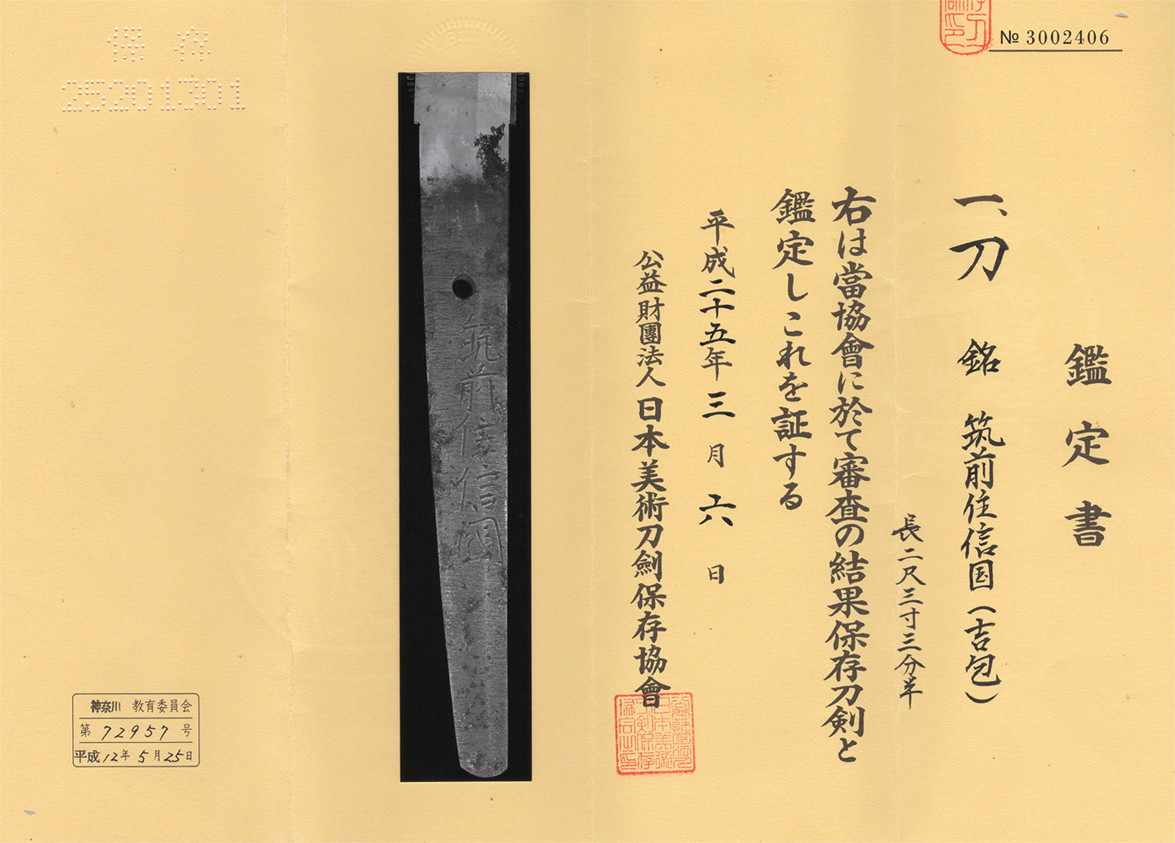 № 3002406
鑑定書
一、刀 銘 筑前住信国(吉包)
長二尺三寸三分半
右は當協會に於て審査の結果保存刀剣と
鑑定しこれを証する
平成二十五年三月六日
公益財團法人 日本美術刀劍保存協會
筑前住信國
保存
25201301
神奈川 教育委員会
第 72957 号
平成12年5月25日